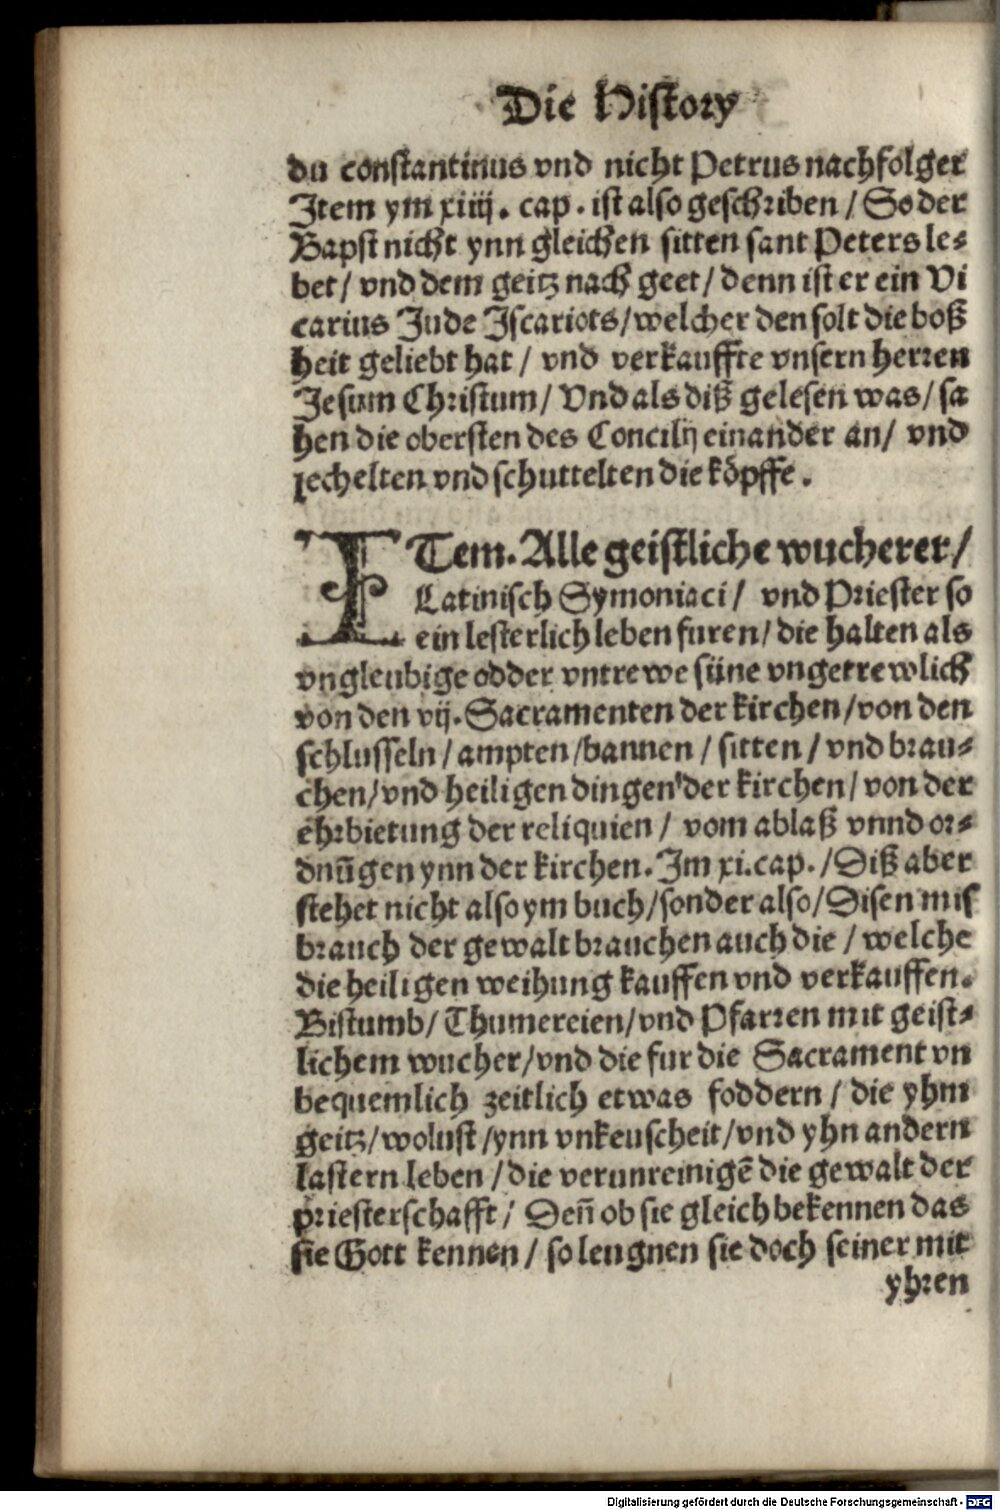 Die History
du constantinus vnd nicht Petrus nachfolger
Item ym xiiij. cap. ist also geschriben / So der
Bapst nicht ynn gleichen sitten sant Peters le⸗
bet / vnd dem geitz nach geet / denn ist er ein Vi
carius Jude Iscariots / welcher den solt die boß
heit geliebt hat / vnd verkauffte vnsern herren
Jesum Christum / Vnd als diß gelesen was / sa
hen die obersten des Concilij einander an / vnd
lechelten vnd schuttelten die köpffe.
ITem. Alle geistliche wucherer /
Latinisch Symoniaci / vnd Priester so
ein lesterlich leben furen / die halten als
vngleubige odder vntrewe süne vngetrewlich
von den vij. Sacramenten der kirchen / von den
schlusseln / ampten / bannen / sitten / vnd brau⸗
chen / vnd heiligen dingen der kirchen / von der
ehrbietung der reliquien / vom ablaß vnnd or⸗
dnūgen ynn der kirchen. Im xi. cap. / Diß aber
stehet nicht also ym buch / sonder also / Disen mis
brauch der gewalt brauchen auch die / welche
die heiligen weihung kauffen vnd verkauffen.
Bistumb / Thumereien / vnd Pfarren mit geist⸗
lichem wucher / vnd die fur die Sacrament vn
bequemlich zeitlich etwas foddern / die yhm
geitz / wolust / ynn vnkeuscheit / vnd yhn andern
lastern leben / die verunreinigē die gewalt der
priesterschafft / Deñ ob sie gleich bekennen das
sie Gott kennen / so leugnen sie doch seiner mit
yhren
Digitalisierung gefördert durch die Deutsche Forschungsgemeinschaft - DFG